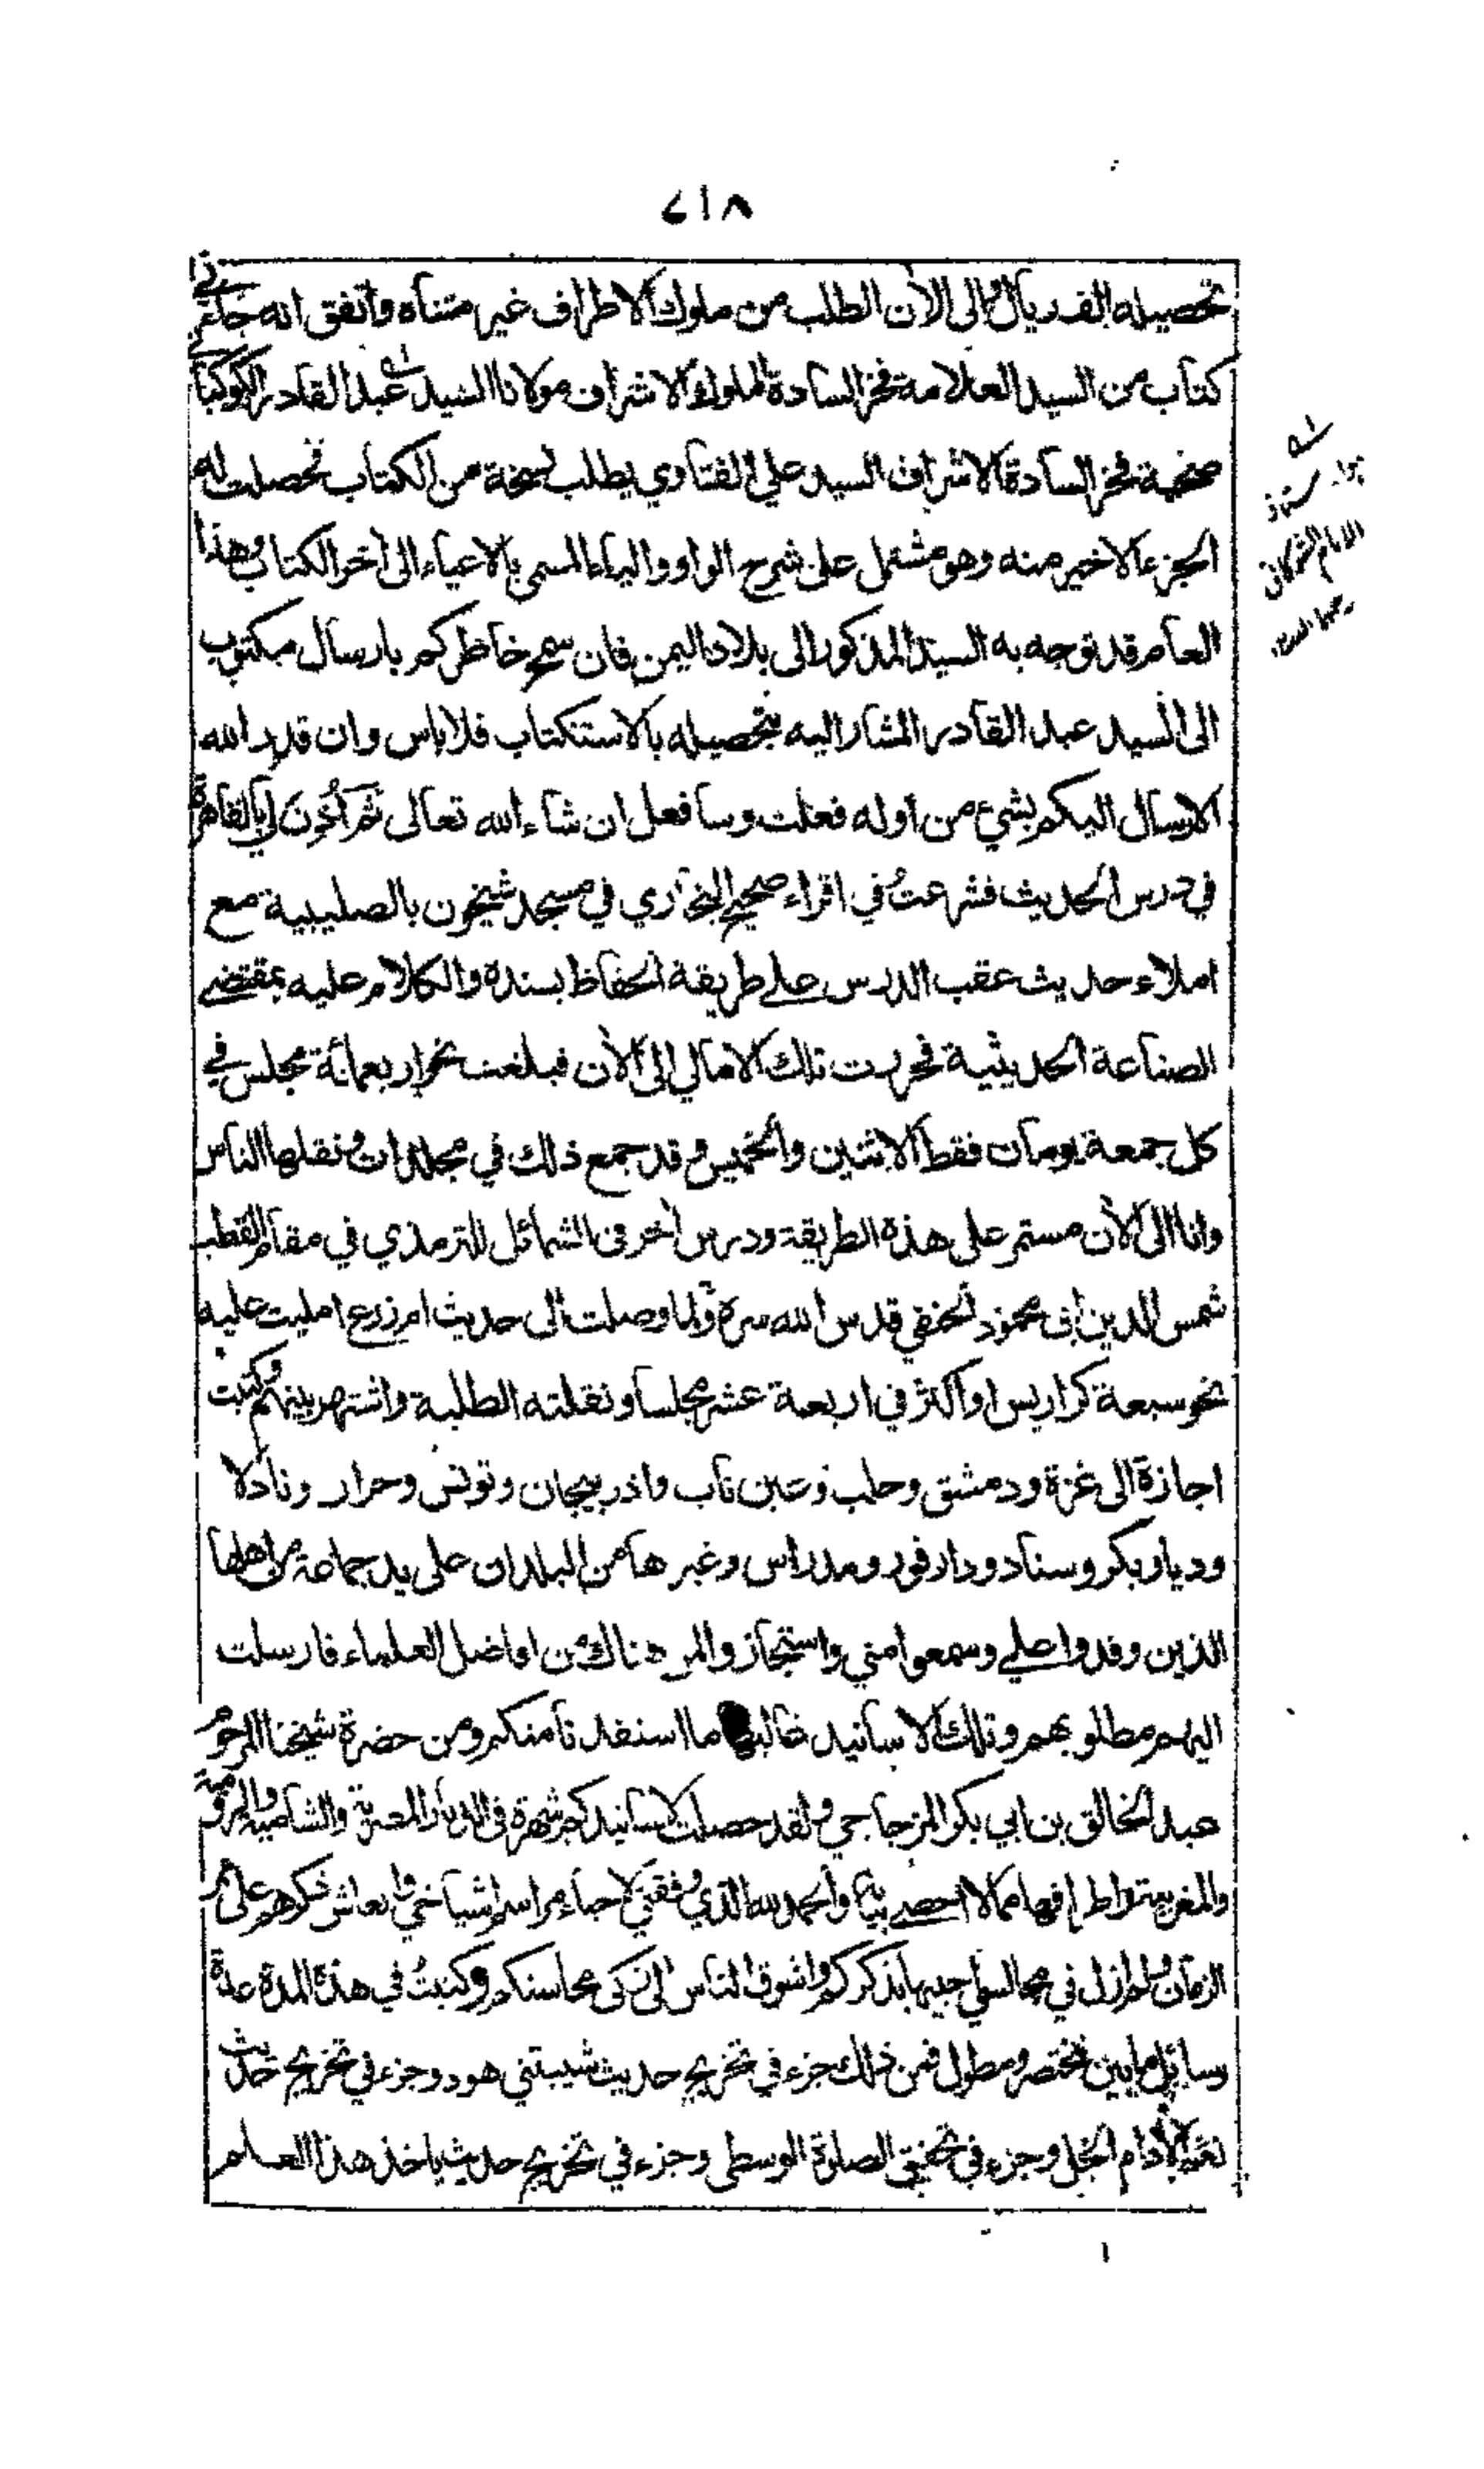 ٧١٨
تحصيله الف ريال والى الآن الطلب من ملوك الاطراف غير متناه واتفق انه جاءني
كتاب من السيد العلامة فخر السادة الملوك الاشراف مولانا السيد عبد القادر الكوكباني
صحبة فخر السادة الاشراف السيد علي القناوي يطلب نسخة من الكتاب تحصلت له
الجزء الاخير منه وهو مشتمل على شرح الواو والياء المسمى بالاعياء الى آخر الكتاب وهذا
العام قد توجه به السيد المذكور الى بلاد اليمن فان سمح خاطركم بارسال مكتوب
الى السيد عبد القادر المشار اليه بتحصيله بالاستكتاب فلا باس وان قدر الله
الارسال اليكم بشيء من اوله فعلت وسافعل ان شاء الله تعالى ثم اُذِنَ لي بالقاهرة
في درس الحديث فشرعتُ في اقراء صحيح البخاري في مسجد شيخون بالصليبية مع
املاء حديث عقب الدرس على طريقة الحفاظ بسنده والكلام عليه بمقتضى
الصناعة الحديثية فحررت تلك الامالي الى الآن فبلغت نحو اربعمائة مجلس في
كل جمعة يومان فقط الاثنين والخميس وقد جمع ذلك في مجلدات ونقلها الناس
وانا الى الآن مستمر على هذه الطريقة ودرس آخر في الشمائل للترمذي في مقام القطب
شمس الدين ابي محمود الحنفي قدس الله سره ولما وصلت الى حديث ام زرع امليت عليه
نحو سبعة كراريس او اكثر في اربعة عشر مجلسا ونقلته الطلبة واشتهر بينهم وكتبت
اجازة الى غزة ودمشق وحلب وعين تاب واذربيجان وتونس وحرار ونادلا
وديار بكر وسناد ودارفور ومدراس وغيرها من البلدان على يد جماعة من اهلها
الذين وفدوا علي وسمعوا مني واستجازوا لمن هناك من افاضل العلماء فارسلت
اليهم مطلوبهم وتلك الاسانيد غالبها ما استفدنا منكم ومن حضرة شيخنا المرحوم
عبد الخالق بن ابي بكر المزجاجي ولقد حصلت لاسانيدكم شهرة في الديار المصرية والشامية والرومية
والمغربية واطرافها مما لا احصي بيانا والحمد لله الذي وفقني لاحياء مراسم اشياخي وانعاش ذكرهم على ممر
الزمان ولم ازل في مجالسي احييها بذكركم واشوق الناس الى زكى محاسنكم وكتبتُ في هذه المدة عدة
رسائل ما بين مختصر ومطول فمن ذلك جزء في تخريج حديث شيبتني هود وجزء في تخريج حديث
نعم الادام الخل وجزء في تحقيق الصلوة الوسطى وجزء في تخريج حديث ياخذ هذا العلم
الامام الشوكاني